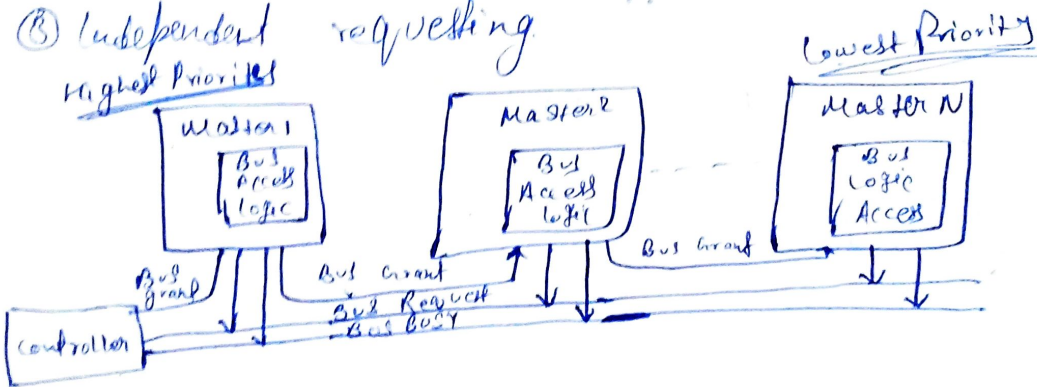 (B) Independent requesting.
Highest Priorites
Lowest Priority
Master 1
Bus
Access
Logic
Master 2
Bus
Access
logic
Master N
Bus
Logic
Access
Bus
grant
Bus Grant
Bus Grant
Bus Request
Bus BUSY
Controller